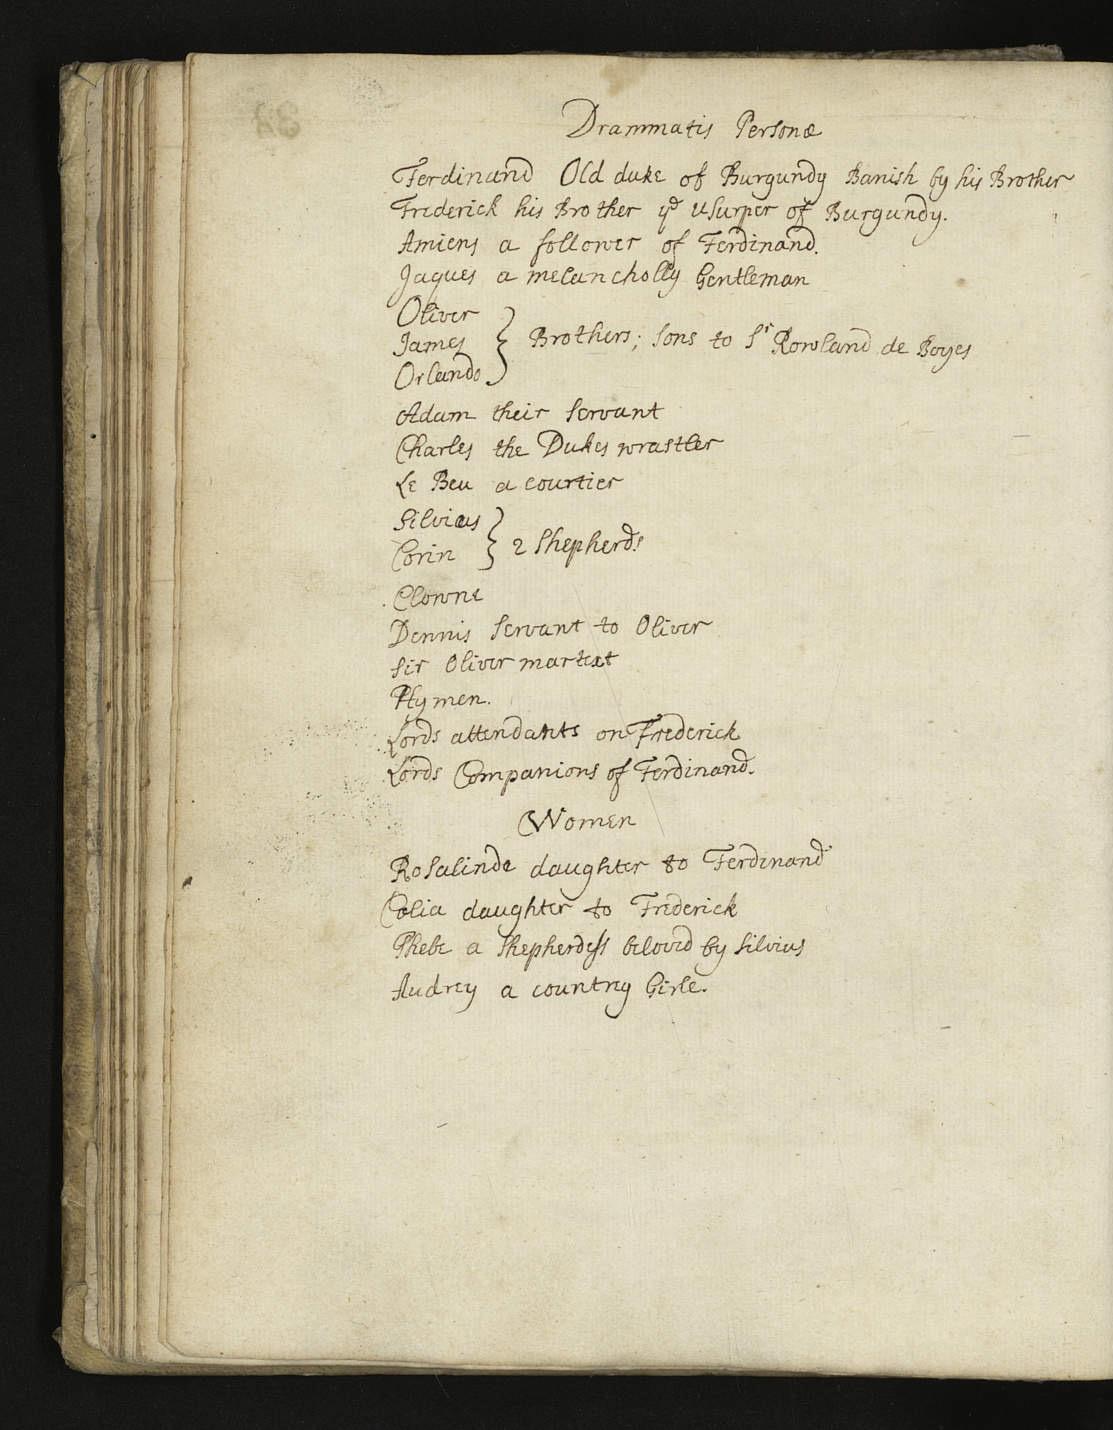 Drammatis Personæ
Ferdinand Old duke of Burgundy Banish by his Brother
Frederick his Brother yᵉ usurper of Burgundy.
Amiens a follower of Ferdinand.
Jaques a melancholly Gentleman
Oliver
James } Brothers; sons to Sʳ Rowland de Boyes
Orlando
Adam their servant
Charles the Dukes wrastler
Le Beu a courtier
Silvius
Corin } 2 shepherds
Clowne
Dennis servant to Oliver
Sir Oliver martext
Hymen.
Lords attendants on Frederick
Lords Companions of Ferdinand.
Women
Rosalinde daughter to Ferdinand
Celia daughter to Frederick
Phebe a shepherdess beloved by Silvius
Audrey a country Girle.